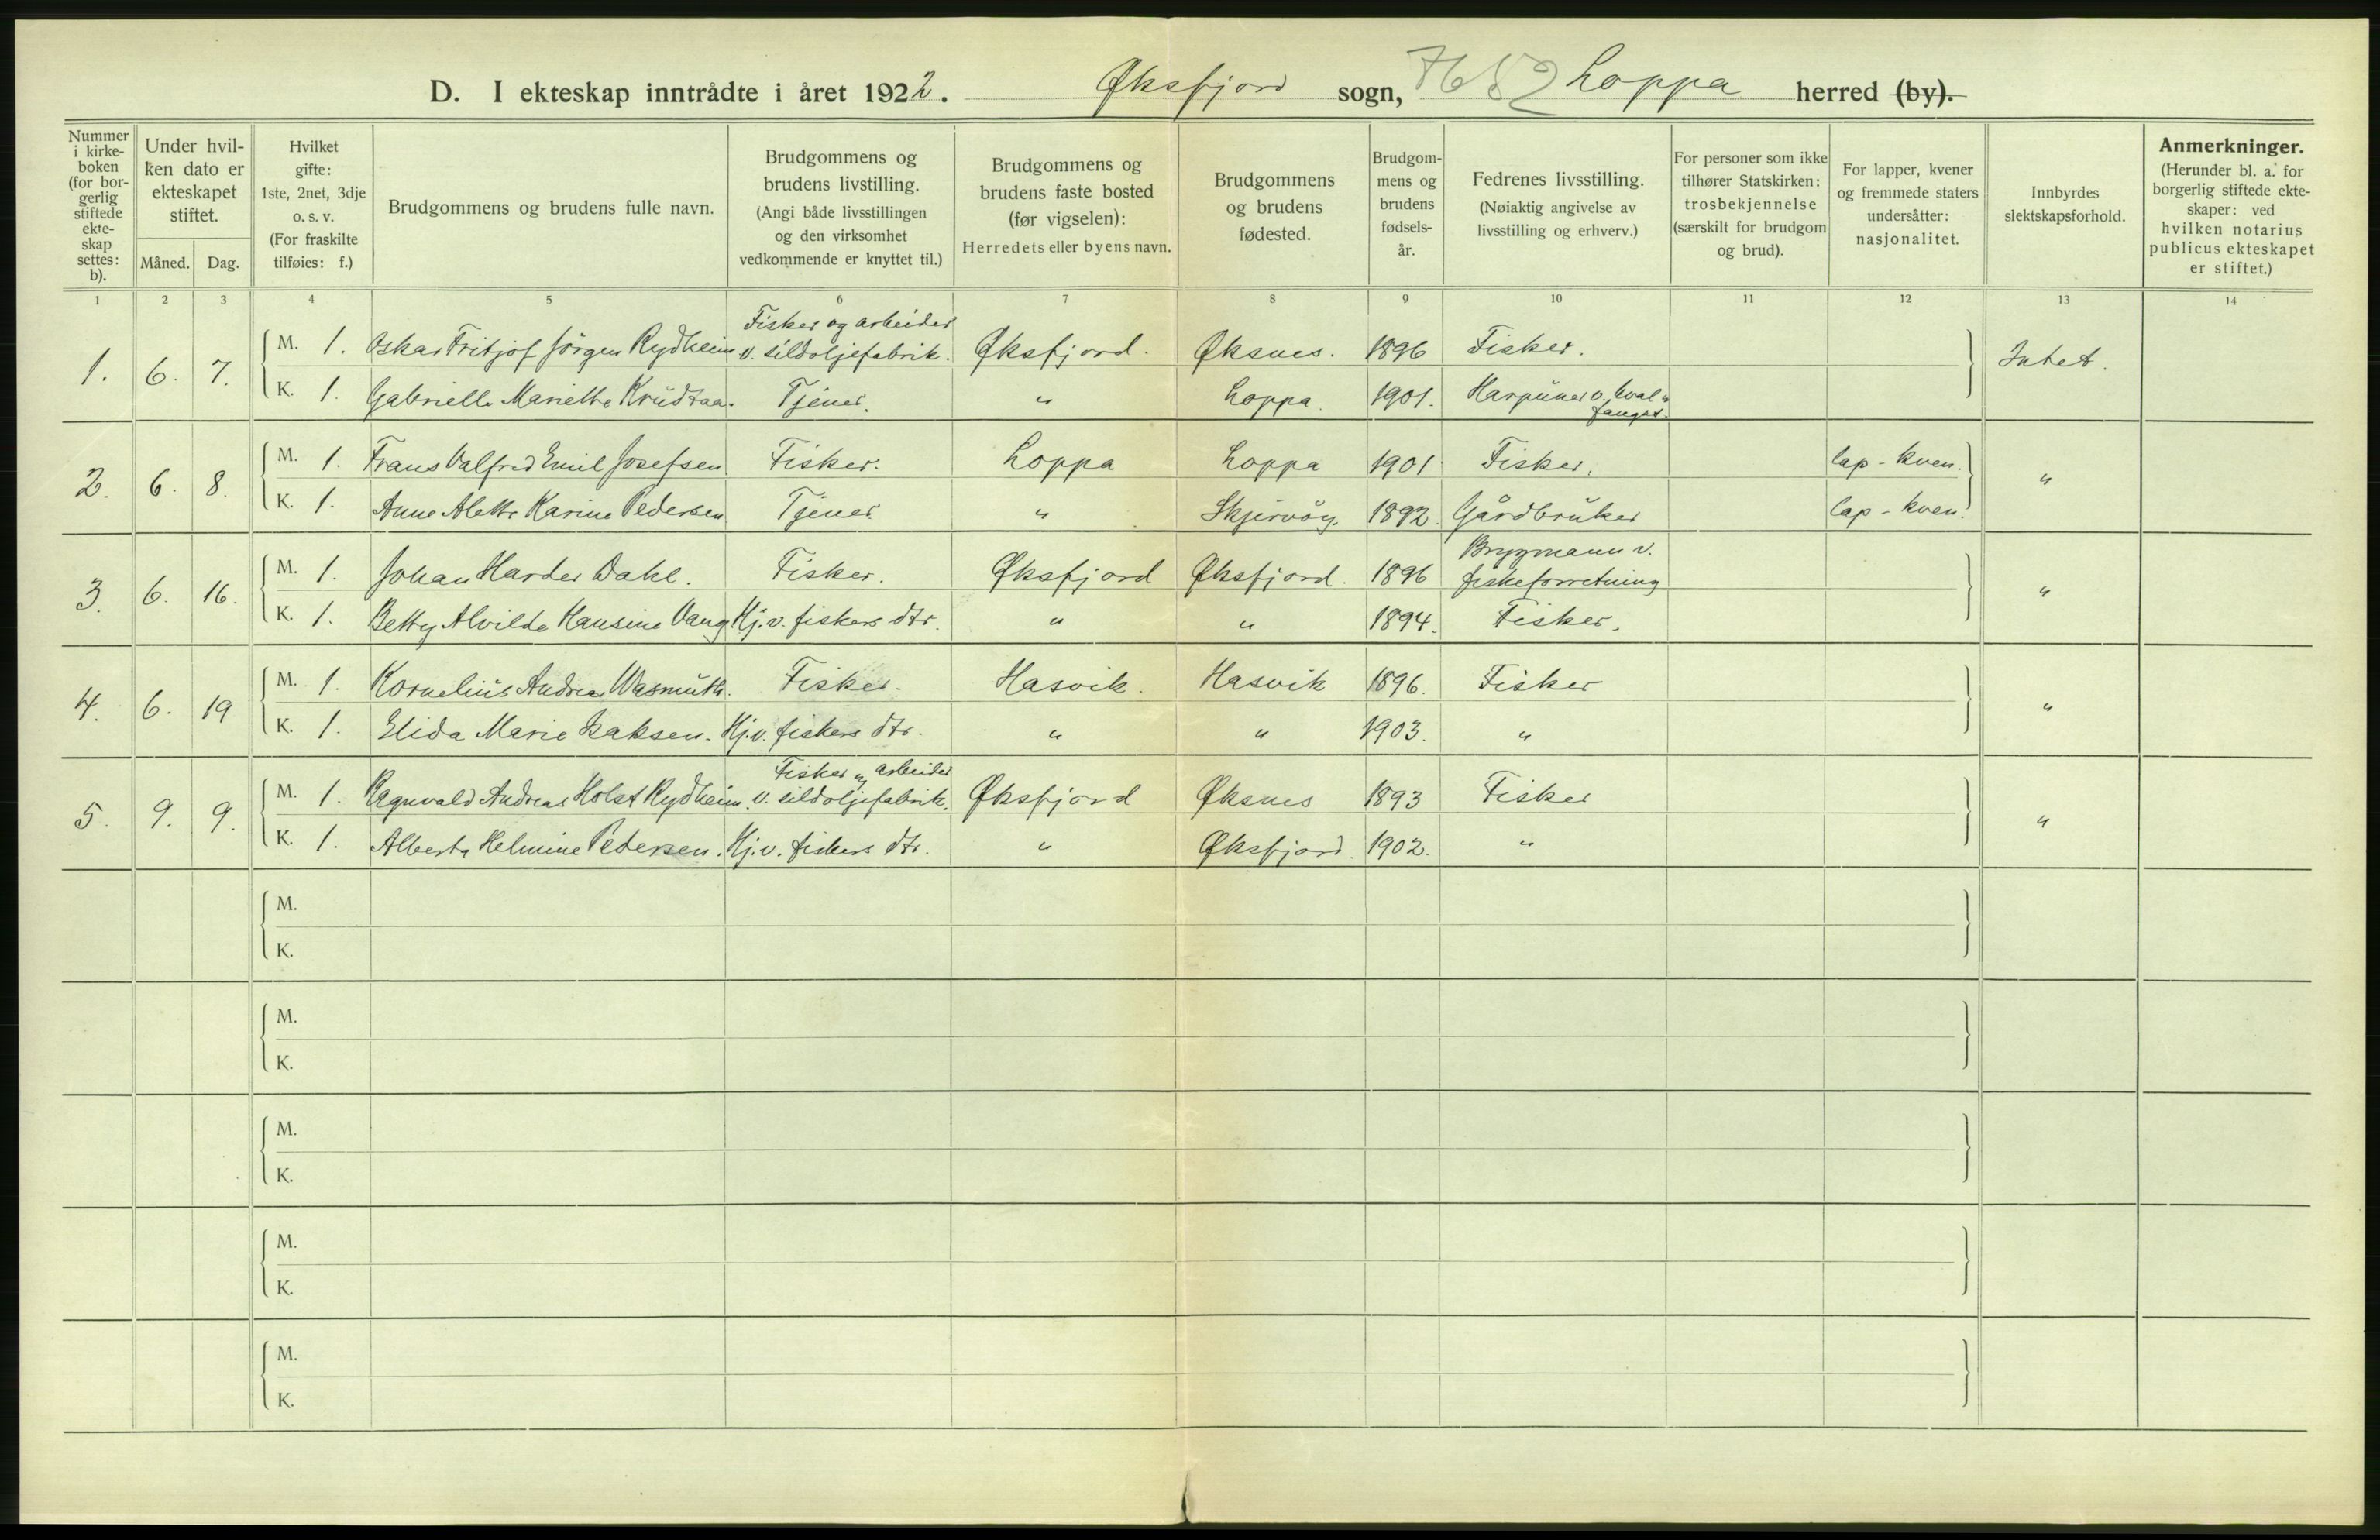 D. I ekteskap inntrådte i året 1922. Øksfjord sogn, 7652 Loppa herred (by).
Nummer i kirke-boken (for bor-gerlig stiftede ekte-skap settes: b).
Under hvil-ken dato er ekteskapet stiftet.
Måned. Dag.
Hvilket gifte: 1ste, 2net, 3dje o. s. v. (For fraskilte tilføies: f.)
Brudgommens og brudens fulle navn.
Brudgommens og brudens livstilling. (Angi både livsstillingen og den virksomhet vedkommende er knyttet til.)
Brudgommens og brudens faste bosted (før vigselen): Herredets eller byens navn.
Brudgommens og brudens fødested.
Brudgom-mens og brudens fødsels-år.
Fedrenes livsstilling. (Nøiaktig angivelse av livsstilling og erhverv.)
For personer som ikke tilhører Statskirken: trosbekjennelse (særskilt for brudgom og brud).
For lapper, kvener og fremmede staters undersåtter: nasjonalitet.
Innbyrdes slektskapsforhold.
Anmerkninger. (Herunder bl. a. for borgerlig stiftede ekte-skaper: ved hvilken notarius publicus ekteskapet er stiftet.)
1 2 3 4 5 6 7 8 9 10 11 12 13 14
1. 6. 7. M. 1. Oskar Fritjof Jörgen Rydheim Fisker og arbeider v. sildoljefabrik. Øksfjord. Øksnes. 1896 Fisker. Intet.
K. 1. Gabrielle Mariethe Krudtaa. Tjener. " Loppa. 1901. Harpuner v. hval-fangst.
2. 6. 8. M. 1. Frans Valfred Emil Josefsen Fisker. Loppa Loppa 1901 Fisker. lap - kven. "
K. 1. Anne Alette Karine Pedersen Tjener " Skjervöy. 1892. Gårdbruker lap - kven.
3. 6. 16. M. 1. Johan Harder Dahl. Fisker. Øksfjord Øksfjord. 1896 Bryggmann v. fiskeforretning "
K. 1. Betty Alvilde Hansine Vang Hj. v. fiskers dtr. " " 1894. Fisker.
4. 6. 19 M. 1. Kornelius Andreas Wasmuth. Fisker. Hasvik. Hasvik 1896. Fisker "
K. 1. Elida Marie Isaksen. Hj. v. fiskers dtr. " " 1903. "
5. 9. 9. M. 1. Ragnvald Andreas Holst Rydheim. Fisker og arbeider v. sildoljefabrik. Øksfjord Øksnes 1893 Fisker "
K. 1. Alberta Helmine Pedersen. Hj. v. fiskers dtr. " Øksfjord. 1902. "
M.
K.
M.
K.
M.
K.
M.
K.
M.
K.